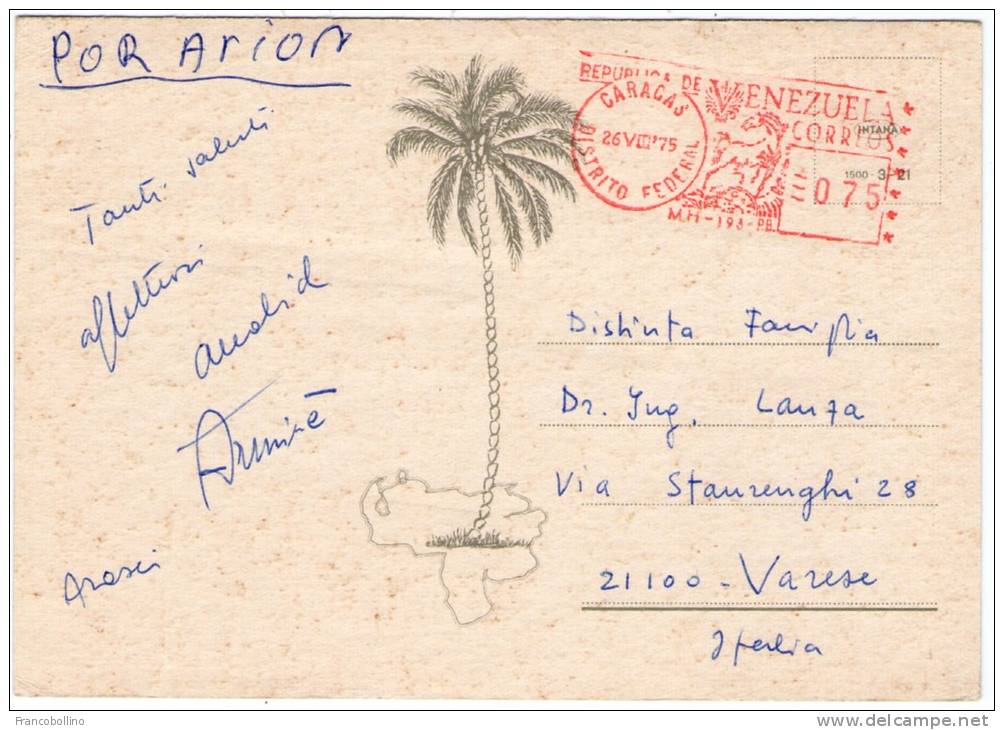 POR AVION
Tanti saluti
affettuosi
REPUBLICA DE VENEZUELA
CORREOS
CARACAS
26 VIII '75
DISTRITO FEDERAL
075
INTANA
1500 - 3 21
Distinta Famiglia
Dr. Ing. Lanza
Via Staurenghi 28
21100 - Varese
Italia
Francobollino
www.delcampe.net